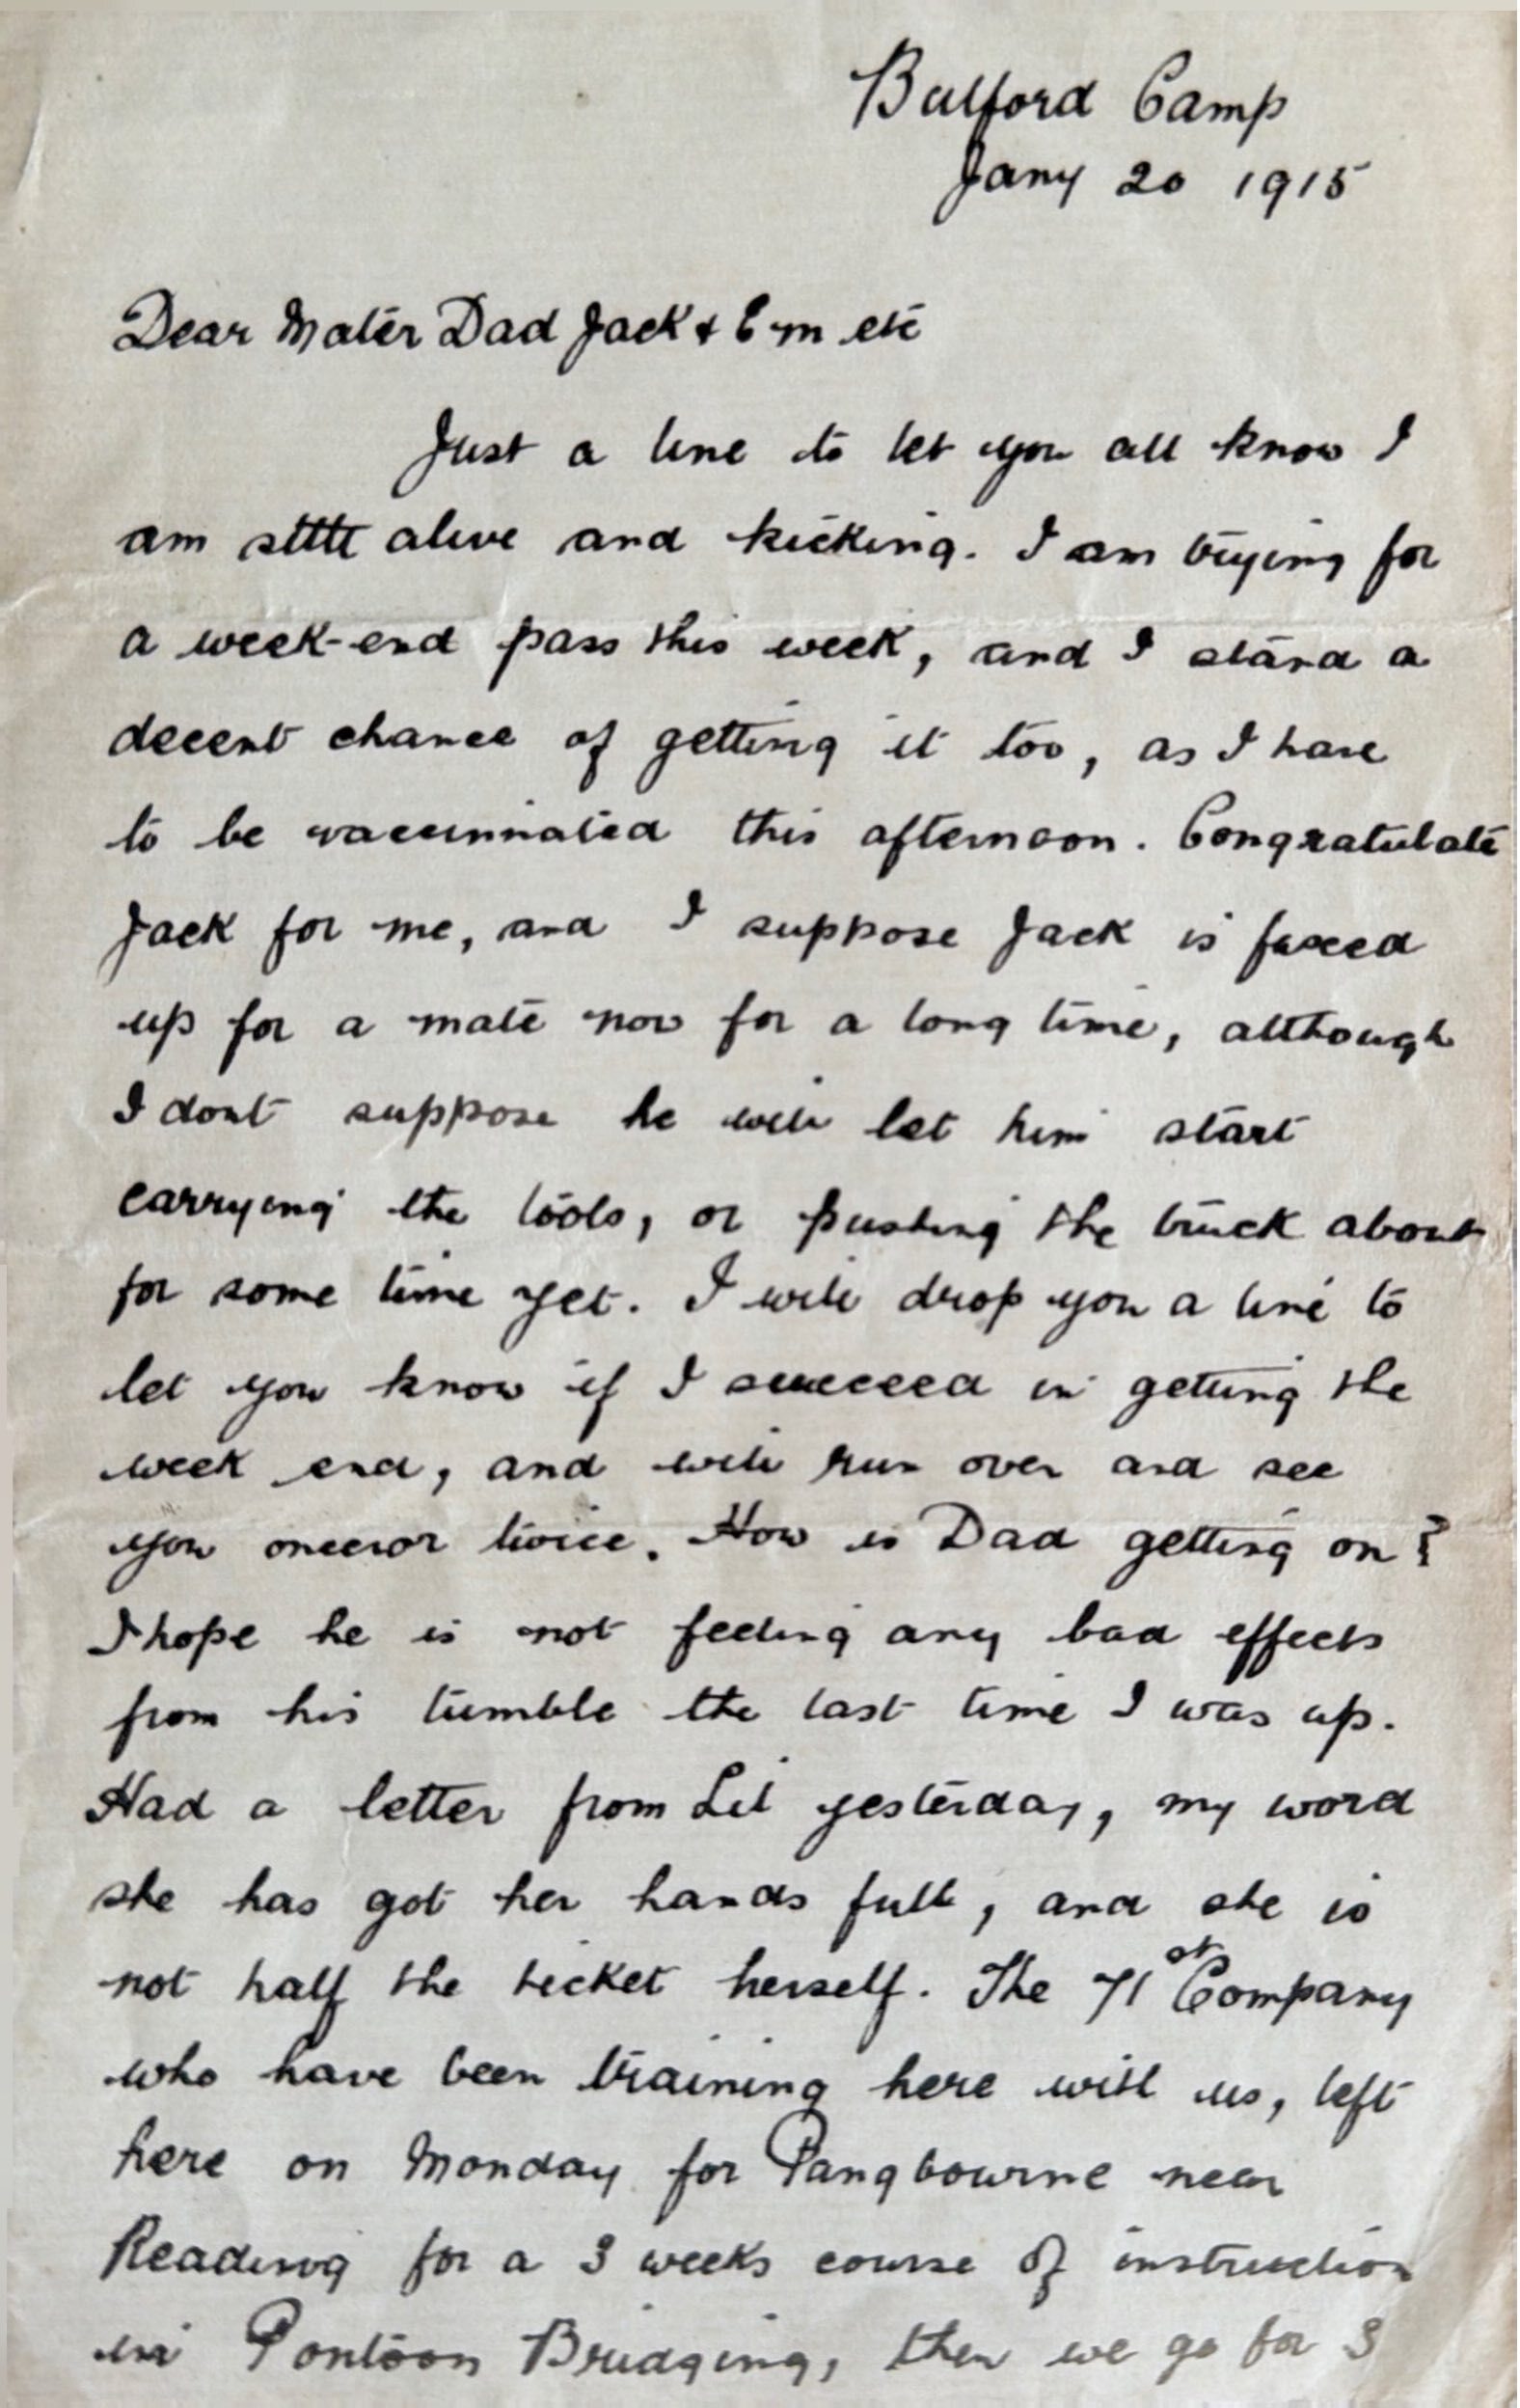 Bulford Camp
Jany 20 1915
Dear Mater Dad Jack & Em etc
Just a line to let you all know I
am still alive and kicking. I am trying for
a week-end pass this week, and I stand a
decent chance of getting it too, as I have
to be vaccinnated this afternoon. Congratulate
Jack for me, and I suppose Jack is fixed
up for a mate now for a long time, although
I dont suppose he will let him start
carrying the tools, or pushing the truck about
for some time yet. I will drop you a line to
let you know if I succeed in getting the
week end, and will run over and see
you once or twice. How is Dad getting on?
I hope he is not feeling any bad effects
from his tumble the last time I was up.
Had a letter from Lil yesterday, my word
she has got her hands full, and she is
not half the ticket herself. The 71st Company
who have been training here with us, left
here on Monday for Pangbourne near
Reading for a 3 weeks course of instruction
in Pontoon Bridging, then we go for 3